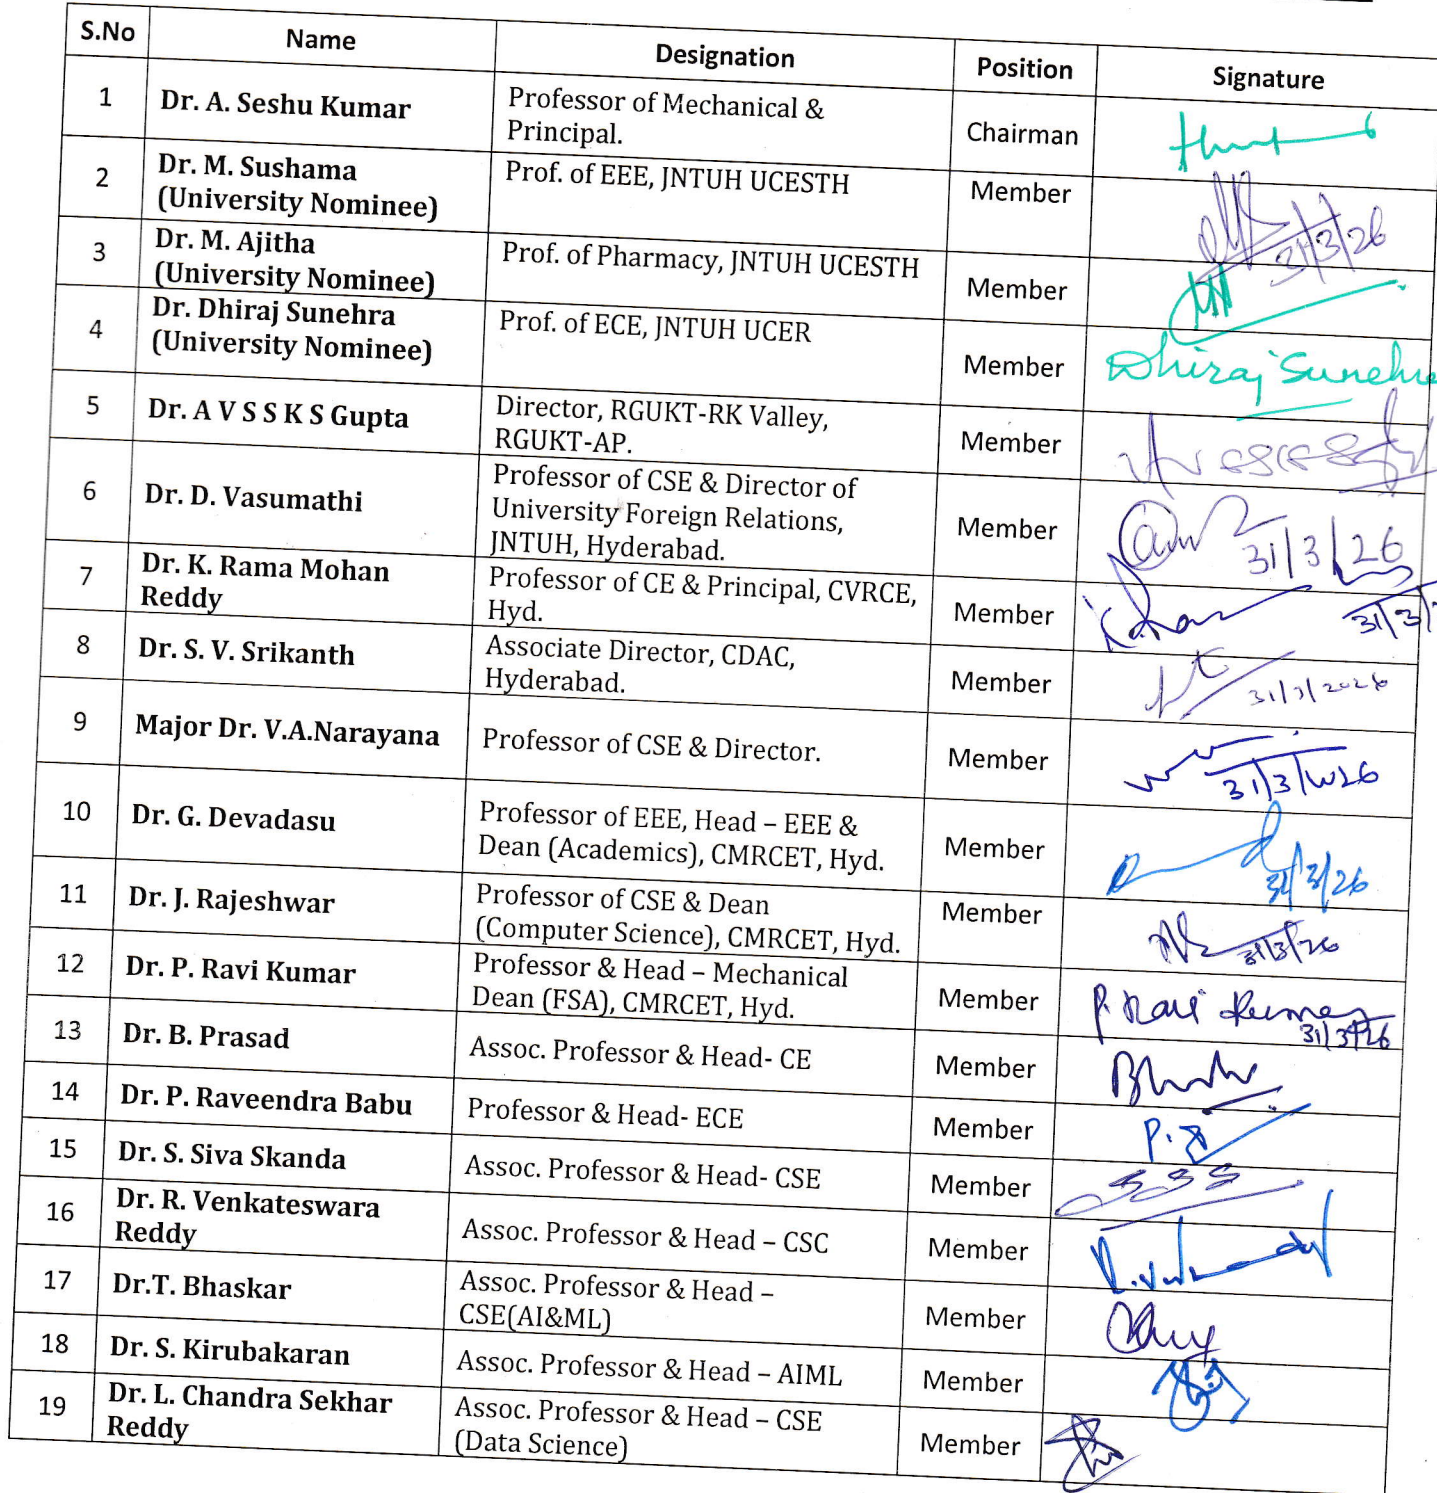 S.No Name Designation Position Signature
1 Dr. A. Seshu Kumar Professor of Mechanical &
Principal. Chairman
2 Dr. M. Sushama
(University Nominee) Prof. of EEE, JNTUH UCESTH Member 31/3/26
3 Dr. M. Ajitha
(University Nominee) Prof. of Pharmacy, JNTUH UCESTH Member
4 Dr. Dhiraj Sunehra
(University Nominee) Prof. of ECE, JNTUH UCER Member Dhiraj Sunehra
5 Dr. A V S S K S Gupta Director, RGUKT-RK Valley,
RGUKT-AP. Member
6 Dr. D. Vasumathi Professor of CSE & Director of
University Foreign Relations,
JNTUH, Hyderabad. Member 31/3/26
7 Dr. K. Rama Mohan
Reddy Professor of CE & Principal, CVRCE,
Hyd. Member 31/3/
8 Dr. S. V. Srikanth Associate Director, CDAC,
Hyderabad. Member 31/3/2026
9 Major Dr. V.A.Narayana Professor of CSE & Director. Member 31/3/2026
10 Dr. G. Devadasu Professor of EEE, Head – EEE &
Dean (Academics), CMRCET, Hyd. Member 31/3/26
11 Dr. J. Rajeshwar Professor of CSE & Dean
(Computer Science), CMRCET, Hyd. Member 31/3/26
12 Dr. P. Ravi Kumar Professor & Head – Mechanical
Dean (FSA), CMRCET, Hyd. Member P. Ravi Kumar
31/3/26
13 Dr. B. Prasad Assoc. Professor & Head- CE Member
14 Dr. P. Raveendra Babu Professor & Head- ECE Member
15 Dr. S. Siva Skanda Assoc. Professor & Head- CSE Member
16 Dr. R. Venkateswara
Reddy Assoc. Professor & Head – CSC Member
17 Dr.T. Bhaskar Assoc. Professor & Head –
CSE(AI&ML) Member
18 Dr. S. Kirubakaran Assoc. Professor & Head – AIML Member
19 Dr. L. Chandra Sekhar
Reddy Assoc. Professor & Head – CSE
(Data Science) Member